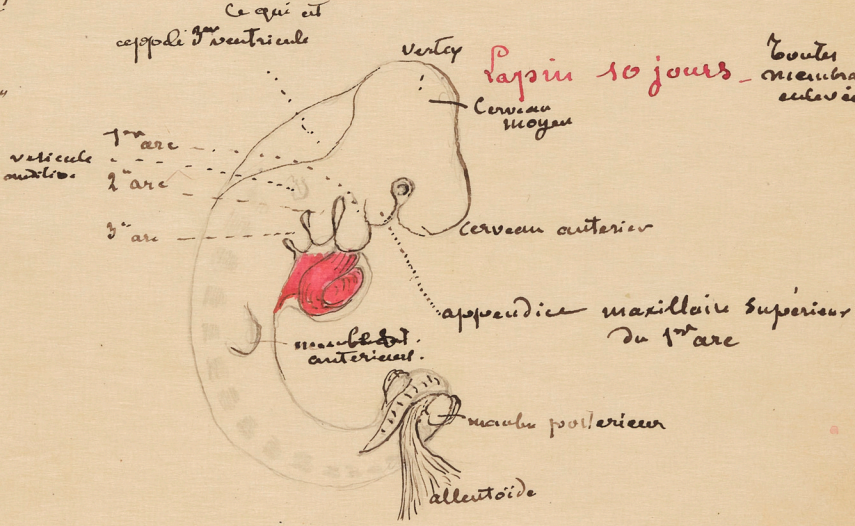 Ce qui est
appelé 3me ventricule
vertex
Lapin 10 jours_
Toutes
membra
enlevé
Cerveau
moyen
1er arc
vesicule
auditive
2me arc
3me arc
Cerveau anterier
appendice maxillaire supérieur
du 1er arc
anterieur.
membre posterieur
allentoïde